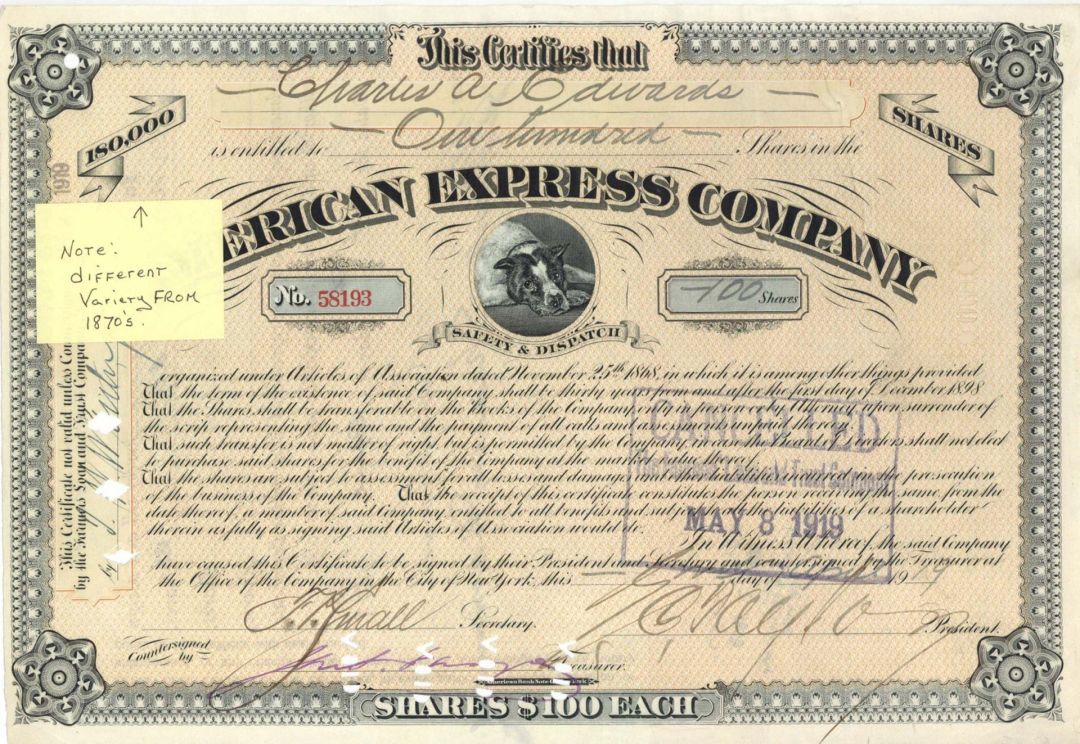 This Certifies that
Charles A Edwards
180,000
SHARES
is entitled to One hundred Shares in the
1919
AMERICAN EXPRESS COMPANY
Note:
different
Variety FROM
1870's.
No. 58193
100 Shares
SAFETY & DISPATCH
organized under Articles of Association dated November 25th 1868, in which it is among other things provided
That the term of the existence of said Company shall be thirty years from and after the first day of December 1898
That the Shares shall be transferable on the Books of the Company only in person or by Attorney upon surrender of
the scrip representing the same and the payment of all calls and assessments unpaid thereon.
That such transfer is not matter of right but is permitted by the Company and the Board of Directors shall not deed
to purchase said shares for the benefit of the Company at the market value thereof
That the shares are subject to assessment for all losses and damages and other liabilities in the prosecution
of the business of the Company. That the receipt of this certificate constitutes the person receiving the same, from the
date thereof, a member of said Company, entitled to all benefits and subject to all the liabilities of a shareholder
therein as fully as signing said Articles of Association would do.
In Witness Whereof, the said Company
have caused this Certificate to be signed by their President and Secretary and countersigned by the Treasurer at
the Office of the Company in the City of New York, this day of 19
CANCELLED
MAY 8 1919
This Certificate not valid unless
by the
by
Secretary.
President.
Countersigned
by
Treasurer.
American Bank Note Co. New York
SHARES $100 EACH